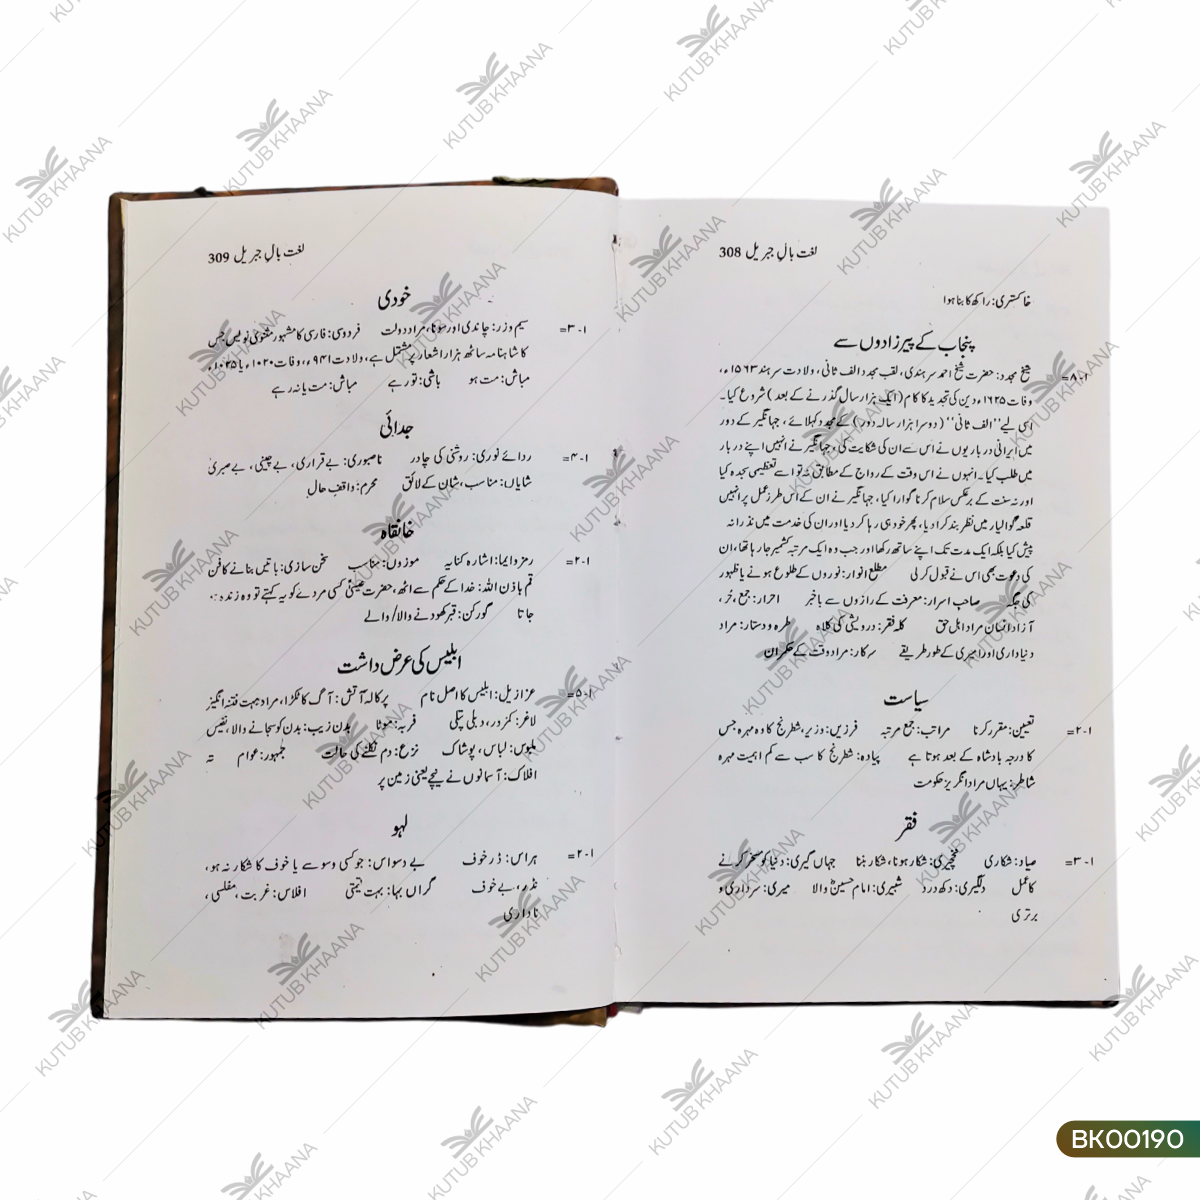 لغت بالِ جبریل 308
خاکستری: راکھ کا بنا ہوا
پنجاب کے پیرزادوں سے
۱-۸= شیخ مجدد: حضرت شیخ احمد سرہندی، لقب مجدد الف ثانی، ولادت سرہند ۱۵۶۳ء،
وفات ۱۶۲۵ء دین کی تجدید کا کام (ایک ہزار سال گذرنے کے بعد) شروع کیا۔
اسی لیے ''الف ثانی'' (دوسرا ہزار سالہ دور) کے مجدد کہلائے، جہانگیر کے دور
میں ایرانی درباریوں نے اس سے ان کی شکایت کی، جہانگیر نے انہیں اپنے دربار
میں طلب کیا۔ انہوں نے اس وقت کے رواج کے مطابق نہ تو اسے تعظیمی سجدہ کیا
اور نہ سنت کے برعکس سلام کرنا گوارا کیا، جہانگیر نے ان کے اس طرز عمل پر انہیں
قلعہ گوالیار میں نظر بند کرا دیا، پھر خود ہی رہا کر دیا اور ان کی خدمت میں نذرانہ
پیش کیا بلکہ ایک مدت تک اپنے ساتھ رکھا اور جب وہ ایک مرتبہ کشمیر جا رہا تھا، ان
کی دعوت بھی اس نے قبول کر لی مطلع انوار: نوروں کے طلوع ہونے یا ظہور
کی جگہ صاحب اسرار: معرفت کے رازوں سے باخبر احرار: جمع، حُر،
آزاد انسان مراد اہل حق کلہ فقر: درویشی کی کلاہ طرہ و دستار: مراد
دنیا داری اور امیری کے طور طریقے سرکار: مراد وقت کے حکمران
سیاست
۱-۲= تعیین: مقرر کرنا مراتب: جمع مرتبہ فرزیں: وزیر، شطرنج کا وہ مہرہ جس
کا درجہ بادشاہ کے بعد ہوتا ہے پیادہ: شطرنج کا سب سے کم اہمیت مہرہ
شاطر: یہاں مراد انگریز حکومت
فقر
۱-۳= صیاد: شکاری نخچیری: شکار ہونا، شکار بننا جہاں گیری: دنیا کو مسخر کرنے
کا عمل دلگیری: دکھ درد شبیری: امام حسینؓ والا میری: سرداری و
برتری
لغت بالِ جبریل 309
خودی
۱-۳= سیم و زر: چاندی اور سونا، مراد دولت فردوسی: فارسی کا مشہور مثنوی نویس جس
کا شاہنامہ ساٹھ ہزار اشعار پر مشتمل ہے، ولادت ۹۴۱ء، وفات ۱۰۲۰ء یا ۱۰۲۵ء
مباش: مت ہو باشی: تو رہے مباش: مت یا نہ رہے
جدائی
۱-۴= ردائے نوری: روشنی کی چادر ناصبوری: بے قراری، بے چینی، بے صبری
شایاں: مناسب، شان کے لائق محرم: واقف حال
خانقاہ
۱-۲= رمز و ایما: اشارہ کنایہ موزوں: مناسب سخن سازی: باتیں بنانے کا فن
قم باذن اللہ: خدا کے حکم سے اٹھ، حضرت عیسیٰؑ کسی مردے کو یہ کہتے تو وہ زندہ ہو
جاتا گورکن: قبر کھودنے والا/والے
ابلیس کی عرضداشت
۱-۵= عزازیل: ابلیس کا اصل نام پرکالہ آتش: آگ کا ٹکڑا، مراد بہت فتنہ انگیز
لاغر: کمزور، دبلی پتلی فربہ: موٹا بدن زیب: بدن کو سجانے والا، نفیس
ملبوس: لباس، پوشاک نزع: دم نکلنے کی حالت جمہور: عوام تہ
افلاک: آسمانوں کے نیچے یعنی زمین پر
لہو
۱-۲= ہراس: ڈر خوف بے وسواس: جو کسی وسوسے یا خوف کا شکار نہ ہو،
نڈر، بے خوف گراں بہا: بہت قیمتی افلاس: غربت، مفلسی،
ناداری
KUTUB KHAANA
BK00190